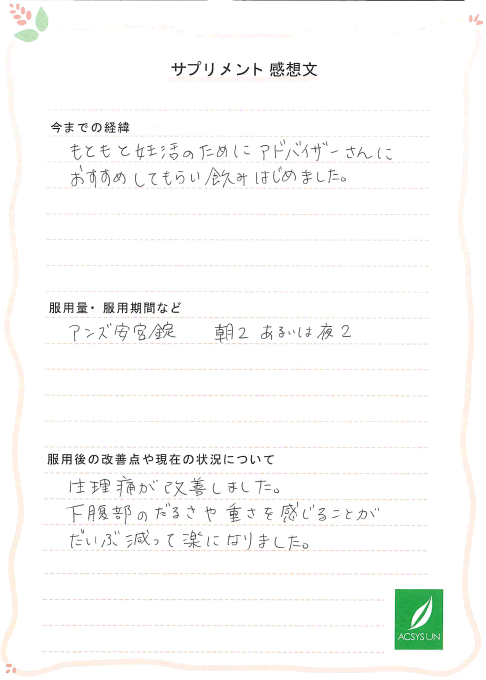 サプリメント 感想文
今までの経緯
もともと妊活のためにアドバイザーさんに
おすすめしてもらい飲みはじめました。
服用量・服用期間など
アンズ安宮錠　朝2 あるいは夜2
服用後の改善点や現在の状況について
生理痛が改善しました。
下腹部のだるさや重さを感じることが
だいぶ減って楽になりました。
ACSYSUN